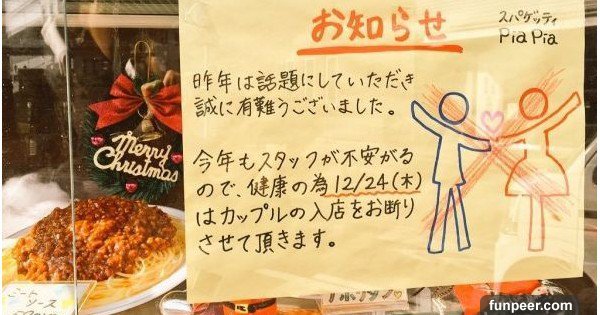 お知らせ
スパゲッティ
PiaPia
昨年は話題にしていただき
誠に有難うございました。
今年もスタッフが不安がる
ので、健康の為12/24(木)
はカップルの入店をお断り
させて頂きます。
Merry
Christmas
ミート
ソース
funpeer.com